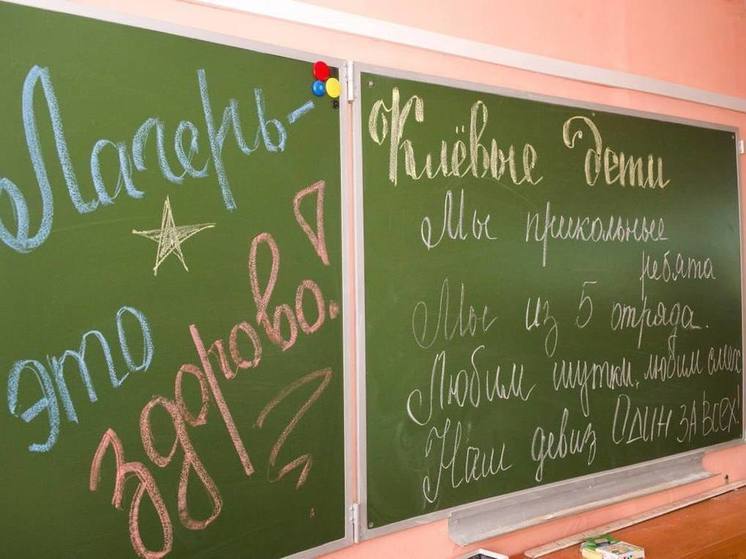 Лагерь-
это
здорово!
Клёвые дети
Мы прикольные
ребята
Мы из 5 отряда.
Любим шутки, любим смех
Наш девиз Один за всех!